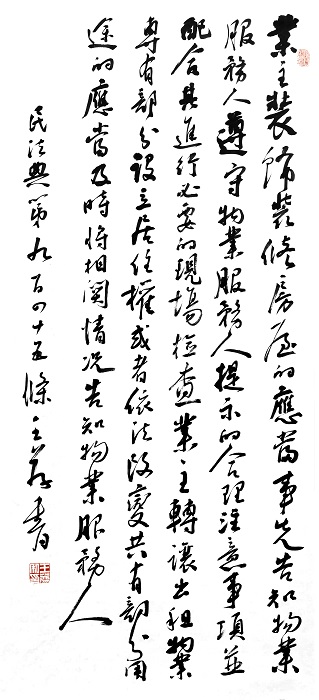 業主裝飾裝修房屋的應當事先告知物業
服務人遵守物業服務人提示的合理注意事項並
配合其進行必要的現場檢查業主轉讓出租物業
專有部分設立居住權或者依法改變共有部分用
途的應當及時將相關情况告知物業服務人
民法典第九百四十五條王書